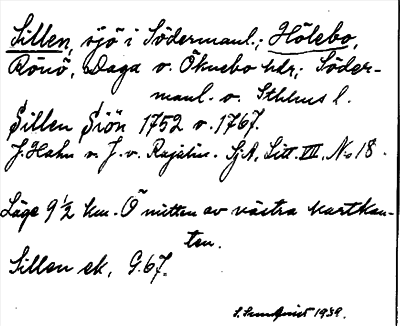 Sillen, sjö i Södermanl.; Hölebo,
Rönö, Daga o. Öknebo hdr; Söder-
manl. o. Sthlms l.
Sillen Siön 1752 o. 1767.
J. Hahn o. J. v. Rajalin. SjA, Litt. VII, No 18.
Läge 9 ½ km. Ö mitten av västra kartkan-
ten.
Sillen ek. G. 67.
1939.